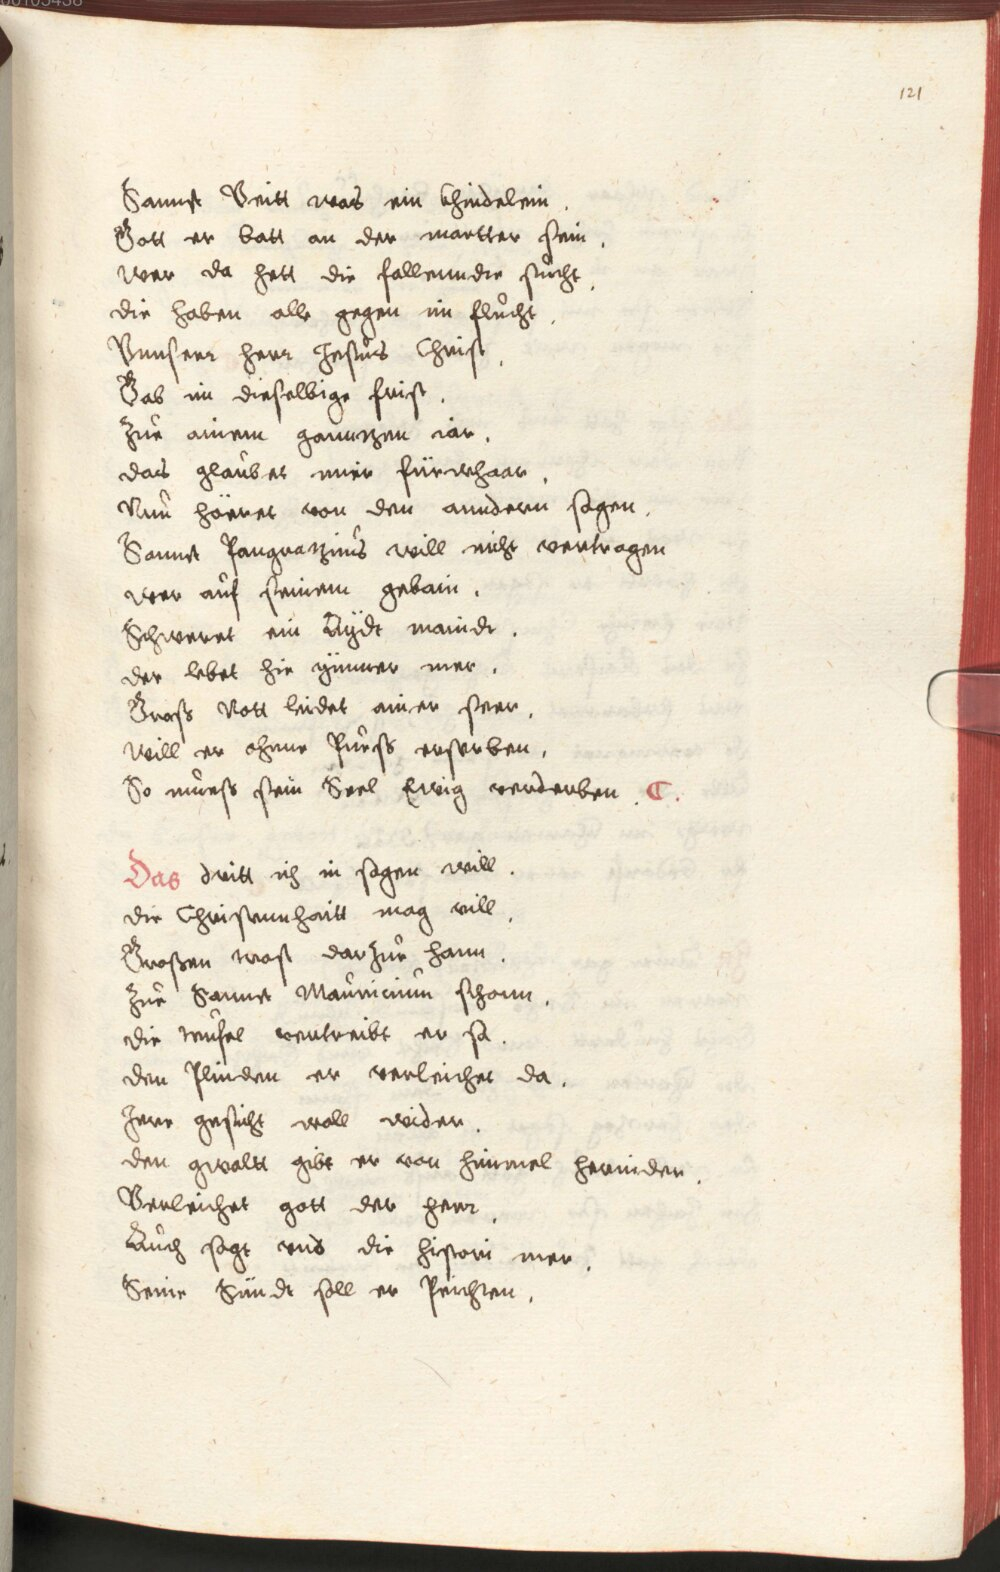 121
Sannct Veitt was ein khindelein.
Gott er batt an der martter sein,
wer da hett die fallenndie sucht,
die haben alle gegen im flucht,
Vnnserr herr Jesus Christ,
Gab im dieselbige frist,
Zue ainem ganntzen iar,
das glaubet mir fürwhaar,
Nun höeret von den anndern sagen,
Sannct Pangratzius will nicht vertragen
wer auf seinem gebain,
Schweret ein Aydt maindt,
der lebet hie nimmer mer,
Gross Nott leidet ainer seer,
will er ohnne Puess ersterben,
So muess sein Seel Ewig verderben. C.
Das dritt ich in sagen will.
die Christennhaitt mag vill,
Großen trost darzue hann,
Zue Sannct Mauricium schonn,
die teufel vertreibt er sa,
den Plinden er verleichet da,
Jere gesicht woll wider,
den gwaltt gibt er von himmel hernider,
Verleichet gott der herr,
Auch sagt vns die histori mer,
Seine Sündt soll er Peichten,